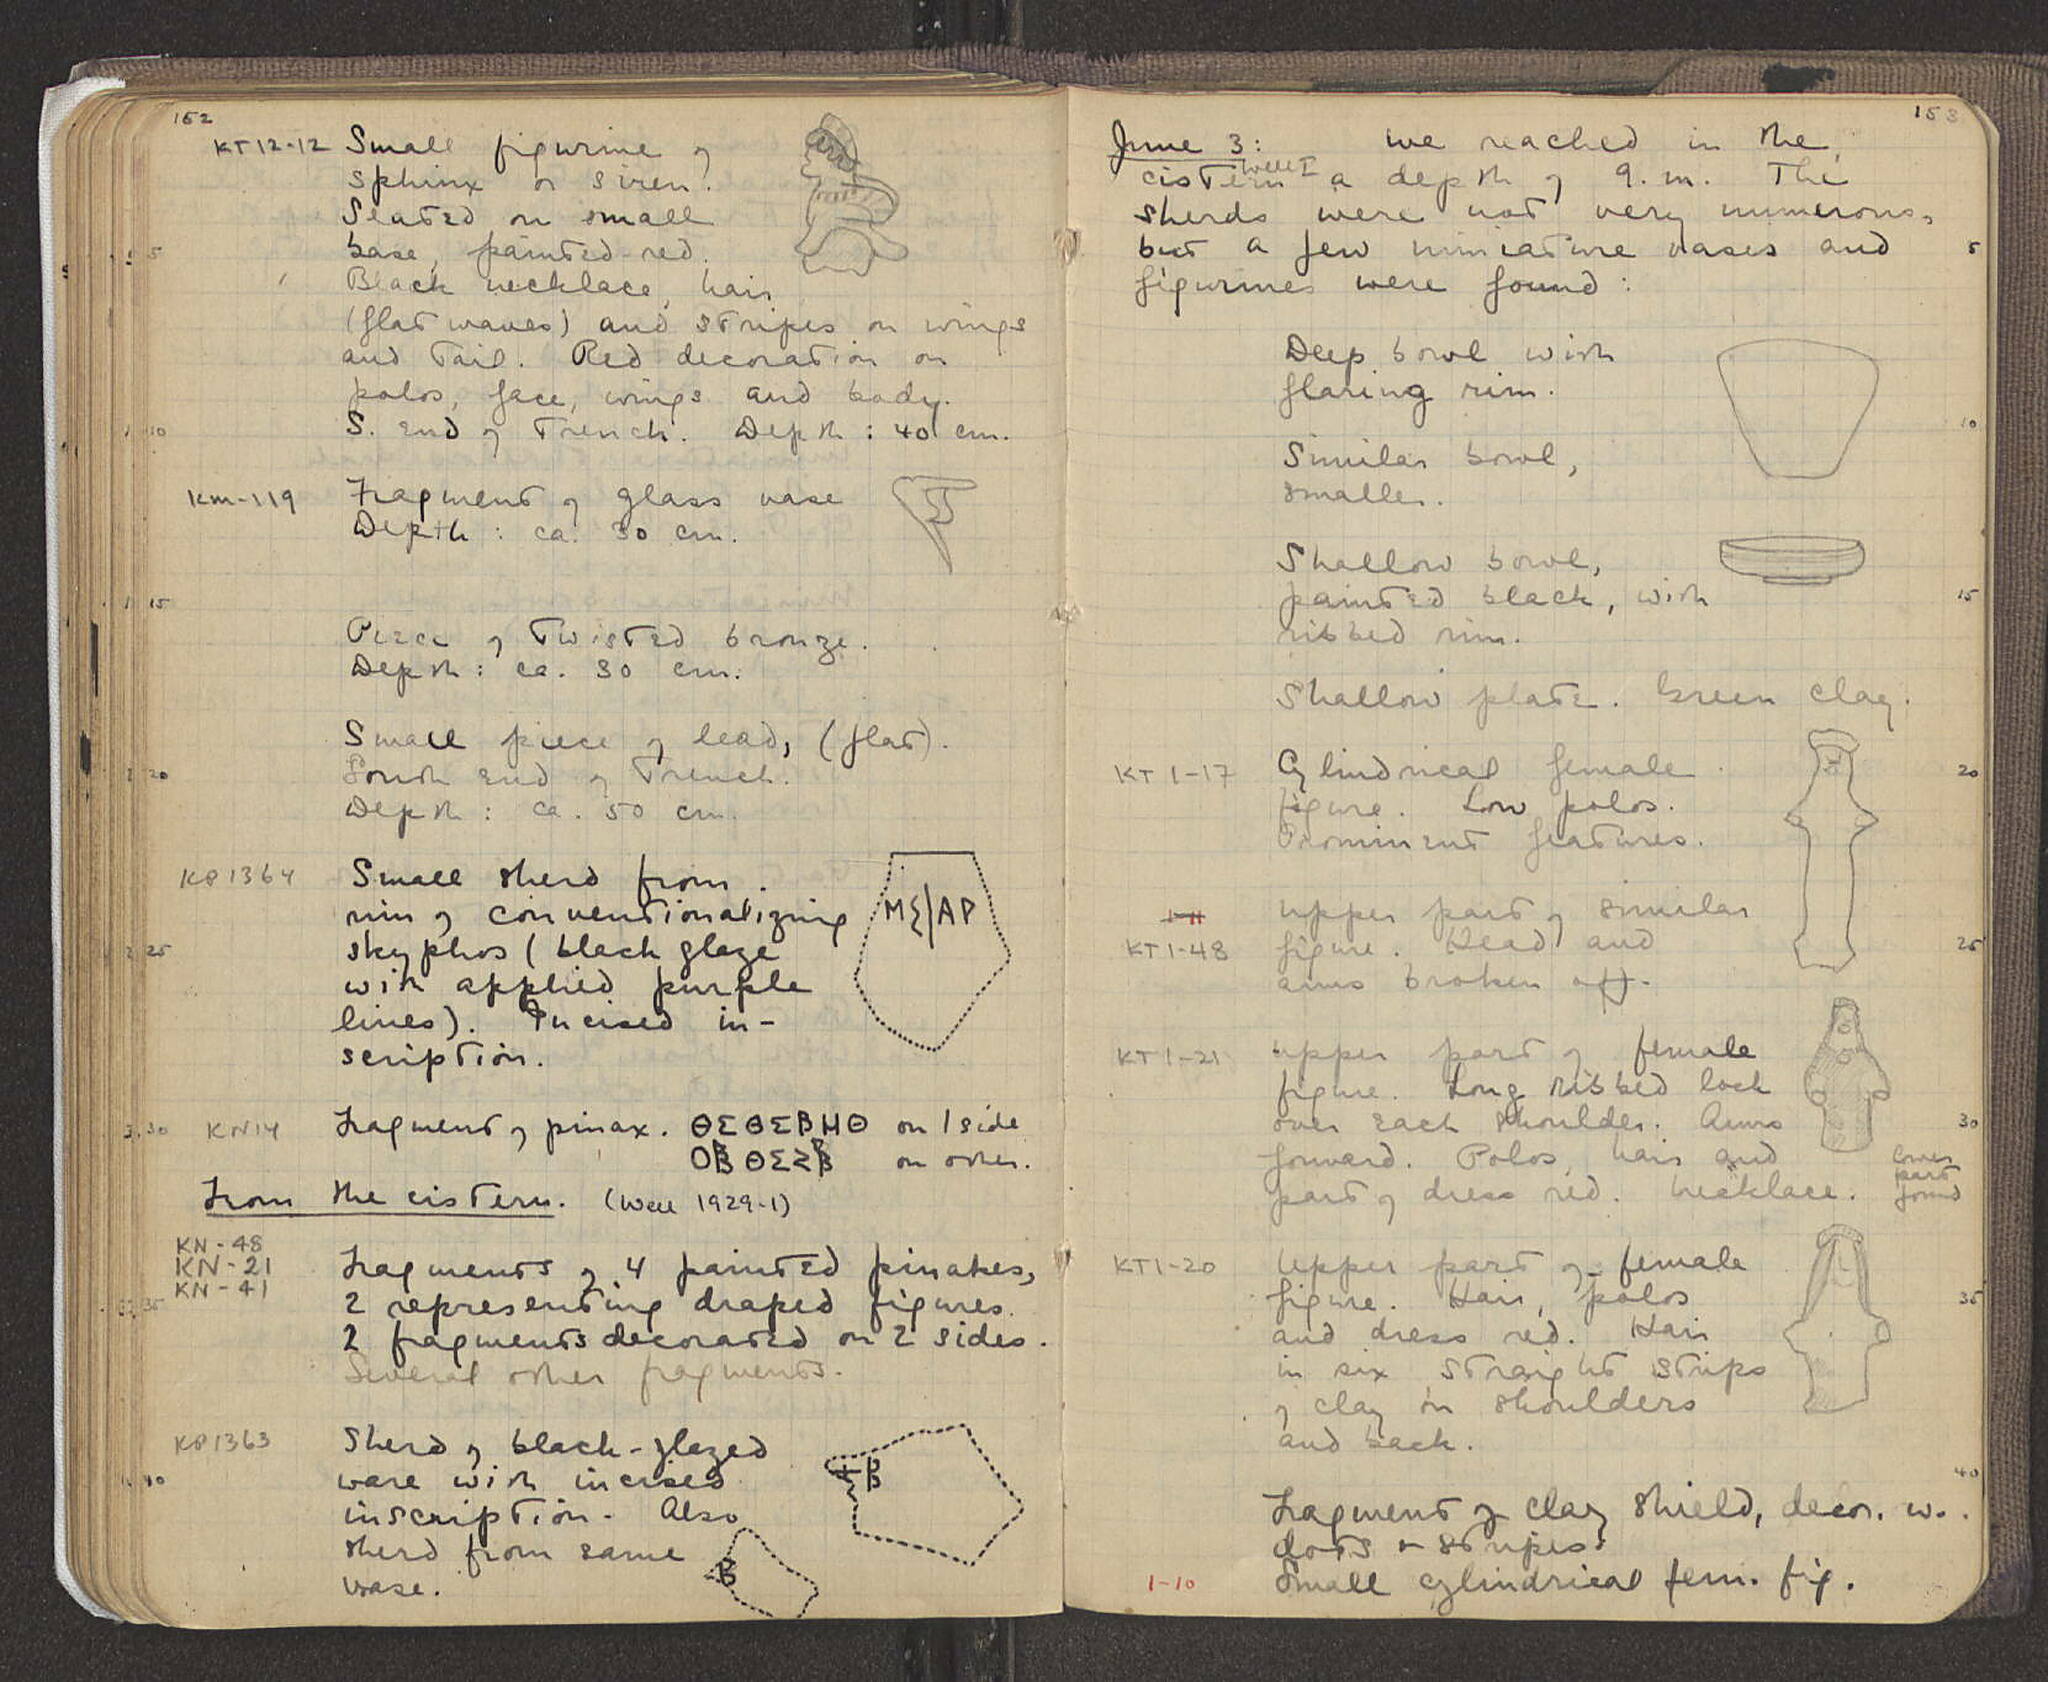 152
KT 12-12 Small figurine of
sphinx or siren.
Seated on small
base, painted red.
5
Black necklace, hair
(flat waves) and stripes on wings
and tail. Red decoration on
polos, face, wings and body.
10
S. End of Trench. Depth : 40 cm.
KM-119 Fragment of glass vase
Depth : ca. 30 cm.
15
Piece of twisted bronze.
Depth : ca. 30 cm.
Small piece of lead, (flat).
20
South End of Trench.
Depth : ca. 50 cm.
KP 1364 Small sherd from
rim of conventionalizing
ΜΣ/ΑΡ
25
skyphos (black glaze
with applied purple
lines). Incised in-
scription.
30
KN 14 Fragment of pinax. ΘΣΘΣΒΜΘ on 1 side
on other.
From the cistern. (Well 1929-1)
KN-48
KN-21
KN-41
Fragments of 4 painted pinakes,
35
2 representing draped figures.
2 fragments decorated on 2 sides.
Several other fragments.
KP 1363 Sherd of black-glazed
40
ware with incised
inscription. Also
sherd from same
vase.
153
June 3: we reached in the
cistern well I a depth of 9. m. The
sherds were not very numerous,
but a few miniature vases and
5
figurines were found :
Deep bowl with
flaring rim.
10
Similar bowl,
smaller.
Shallow bowl,
painted black, with
15
ribbed rim.
Shallow plate. Green clay.
KT 1-17 Cylindrical female
20
figure. Low polos.
Prominent features.
Upper part of similar
KT 1-48 figure. Head and
25
arms broken off.
KT 1-21 Upper part of female
figure. Long ribbed lock
over each shoulder. Arms
30
forward. Polos, hair and
part of dress red. Necklace.
lower
part
found
KT 1-20 Upper part of female
figure. Hair, polos
35
and dress red. Hair
in six straight strips
of clay on shoulders
and back.
40
Fragment of clay shield, decor. w.
dots & stripes.
1-10 Small cylindrical fem. fig.